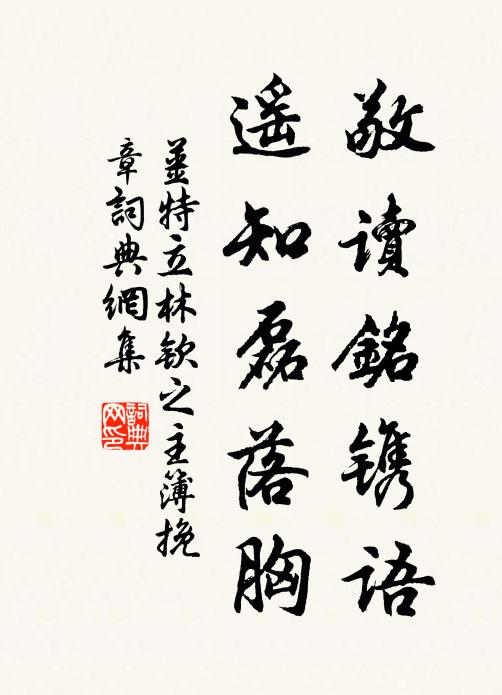 敬讀銘镌語
遥知磊落胸
姜特立林欽之主簿挽
章詞典網集
詞典网印